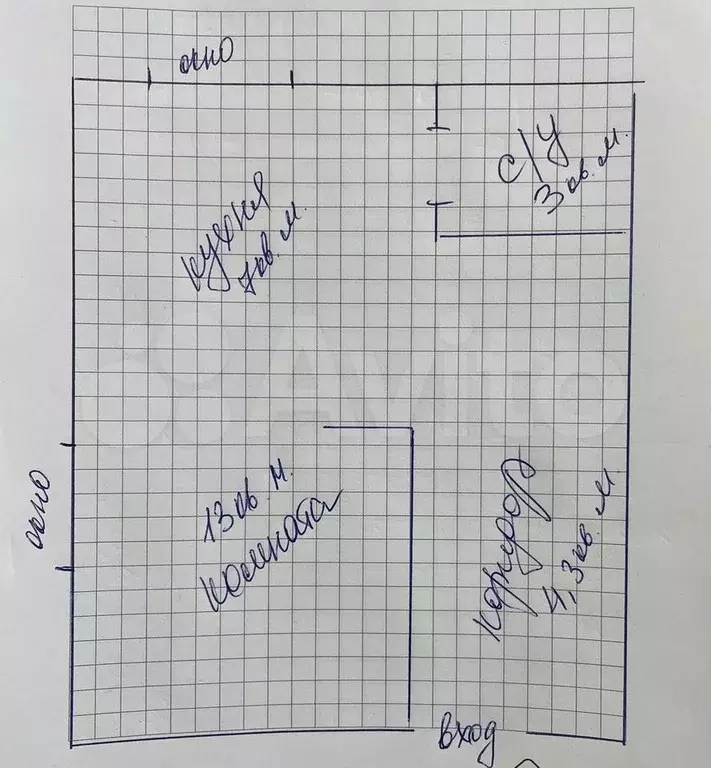 окно
с/у
3 кв. м.
кухня
7 кв. м.
Avito
13 кв. м.
комната
окно
коридор
4,3 кв. м.
вход